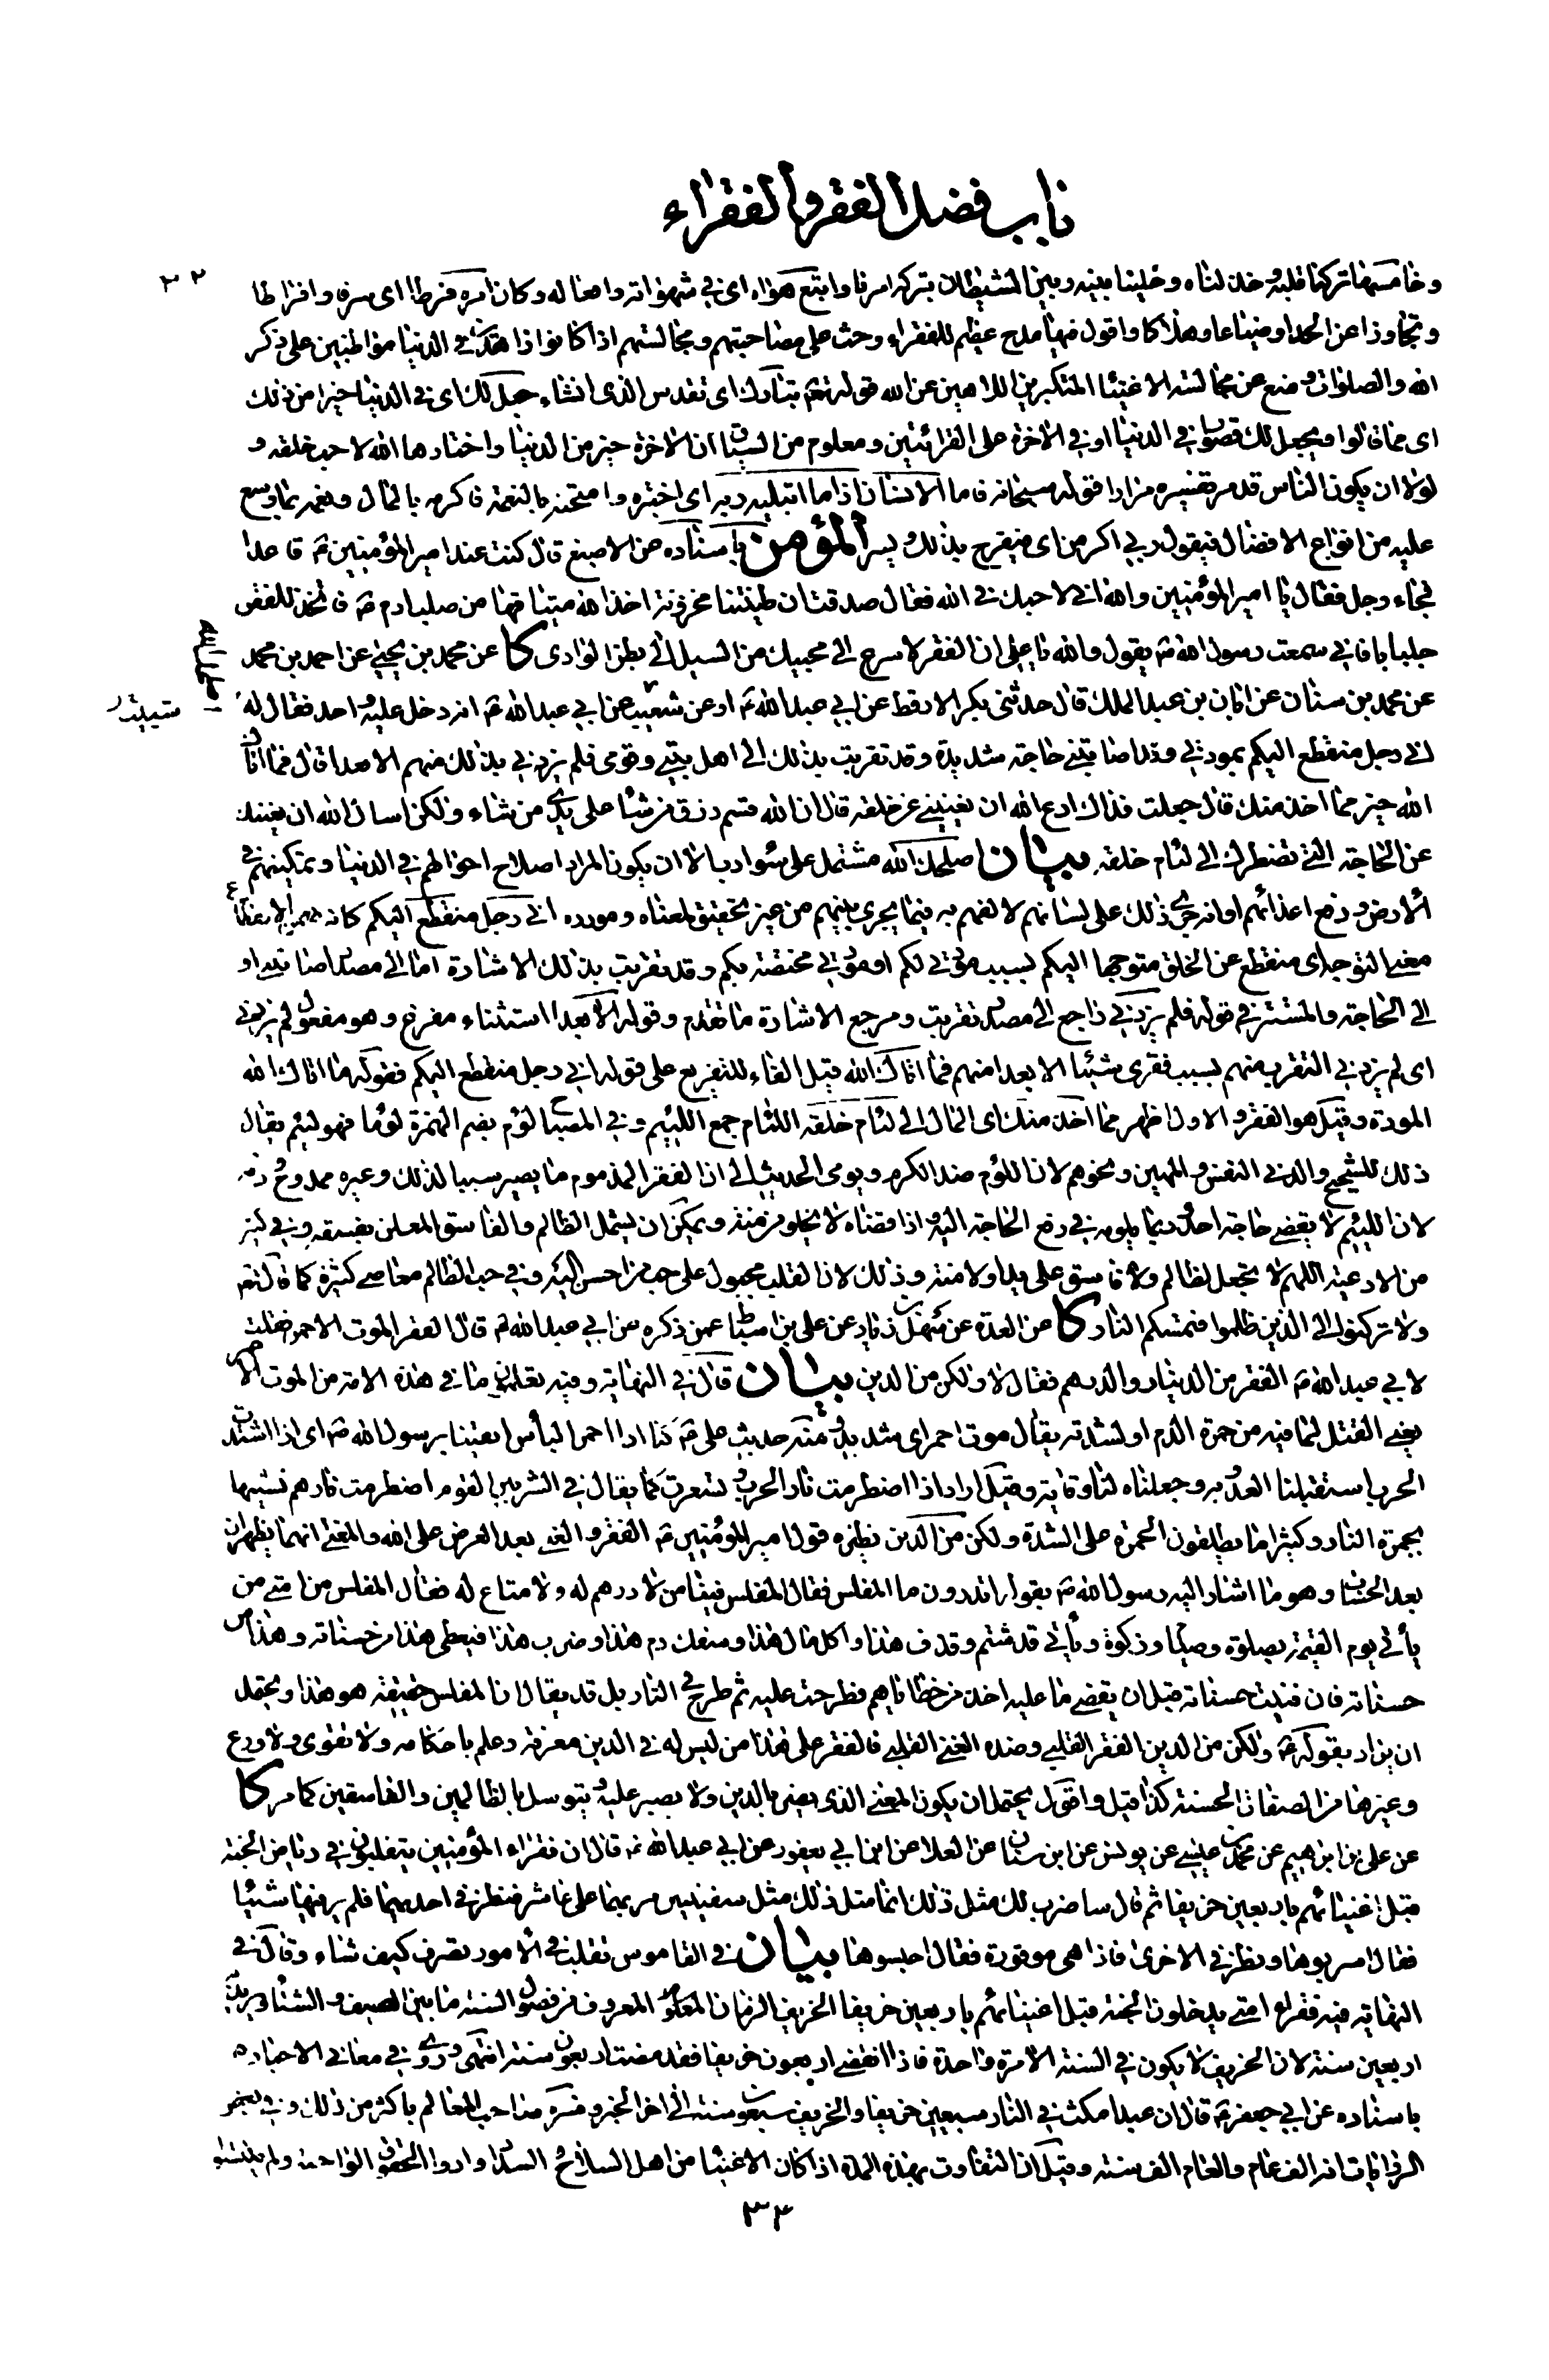 باب فضل الفقر والفقراء
٣٢
وخامسها تركنا قلبه وخذلناه وخلينا بينه وبين الشيطان بتركه امرنا واتبع هواه اى فى شهواته وافعاله وكان امره فرطا اى سرفا وافراطا
وتجاوزا عن الحد او ضياعا وهلاكا واقول فيها مدح عظيم للفقراء وحث على مصاحبتهم ومجالستهم اذا كانوا زاهدين فى الدنيا مواظبين على ذكر
الله والصلوات ومنع عن مجالسة الاغنياء المتكبرين اللاهين عن الله قوله تعالى تبارك اى تقدس الذى ان شاء جعل لك اى فى الدنيا خيرا من ذلك
اى مما قالوا ويجعل لك قصورا فى الدنيا او فى الاخرة على القرائتين ومعلوم من السياق ان الاخرة خير من الدنيا واختارها الله لاحب خلقه و
لولا ان يكون الناس قد مر تفسيره مرارا قوله سبحانه فاما الانسان اذا ما ابتليه ربه اى اختبره وامتحنه بالنعمة فاكرمه بالمال ونعمه بما وسع
عليه من انواع الافضال فيقول ربى اكرمن اى فيفرح بذلك ويسر المؤمن باسناده عن الاصبغ قال كنت عند امير المؤمنين ع قاعدا
فجاء رجل فقال يا امير المؤمنين والله انى لاحبك فى الله فقال صدقت ان طينتنا مخزونة اخذ الله ميثاقها من صلب ادم ع فاتخذ للفقر
جلبابا فانى سمعت رسول الله ص يقول والله يا على ان الفقر لاسرع الى محبيك من السيل الى بطن الوادى كا عن محمد بن يحيى عن احمد بن محمد
عن محمد بن سنان عن ابان بن عبد الملك قال حدثنى بكر الارقط عن ابى عبد الله ع او عن شعيب عن ابى عبد الله ع انه دخل عليه واحد فقال له
اصلحك الله
انى رجل منقطع اليكم بمودتى وقد اصابتنى حاجة شديدة وقد تقربت بذلك الى اهل بيتى وقومى فلم يزدنى بذلك منهم الا بعدا قال فما اتاك
الله خير مما اخذ منك قال جعلت فداك ادع الله ان يغنينى عن خلقه قال ان الله قسم رزق من شاء على يدى من شاء ولكن اسأل الله ان يغنيك
عن الحاجة التى تضطرك الى لئام خلقه بيان اصلحك الله مشتمل على سوء ادب الا ان يكون المراد اصلاح احوالهم فى الدنيا وتمكينهم فى
الارض ودفع اعدائهم او انه جرى ذلك على لسانهم لالفهم به فيما يجرى بينهم من غير تحقيق لمعناه ومورده انى رجل منقطع اليكم كانه
معنى التوجه اى منقطع عن الخلق متوجها اليكم بسبب مودتى لكم او مودتى مختصة بكم وقد تقربت بذلك الاشارة اما الى مصدر اصابتنى او
الى الحاجة والمستتر فى قوله فلم يزدنى راجع الى مصدر تقربت ومرجع الاشارة ما تقدم وقوله الا بعدا استثناء مفرغ وهو مفعول لم يزدنى
اى لم يزدنى التقرب منهم بسبب فقرى شيئا الا بعدا منهم فما اتاك الله قيل الفاء للتفريع على قوله انى رجل منقطع اليكم فقوله ما اتاك الله
المودة وقيل هو الفقر والاول اظهر مما اخذ منك اى المال الى لئام خلقه اللئام جمع اللئيم وفى المصباح لؤم بضم الهمزة لؤما فهو لئيم يقال
ذلك للشحيح والدنى النفس والمهين ونحوهم لان اللؤم ضد الكرم ويومى الحديث الى ان الفقر المذموم ما يصير سببا لذلك وغيره ممدوح وذمه
لان اللئيم لا يقضى حاجة احد وربما يلومه فى رفع الحاجة اليه واذا قضاه لا يخلو من منة ويمكن ان يشمل الظالم والفاسق المعلن بفسقه وفى كثير
من الادعية اللهم لا تجعل لظالم ولا فاسق على يدا ولا منة وذلك لان القلب مجبول على حب من احسن اليه وفى حب الظالم معاصى كثيرة كما قال تعالى
ولا تركنوا الى الذين ظلموا فتمسكم النار كا عن العدة عن سهل بن زياد عن على بن اسباط عمن ذكره عن ابى عبد الله ع قال الفقر الموت الاحمر فقلت
لابى عبد الله ع الفقر من الدينار والدرهم فقال لا ولكن من الدين بيان قال فى النهاية وفيه لو تعلمون ما فى هذه الامة من الموت الاحمر
يعنى القتل لما فيه من حمرة الدم او لشدته يقال موت احمر اى شديد ومنه حديث على ع كنا اذا احمر البأس اتقينا برسول الله ص اى اذا اشتدت
الحرب استقبلنا العدو به وجعلناه لنا وقاية وقيل اراد اذا اضطرمت نار الحرب وتسعرت كما يقال فى الشر بين القوم اضطرمت نارهم تشبيها
بحمرة النار وكثيرا ما يطلقون الحمرة على الشدة ولكن من الدين نظيره قول امير المؤمنين ع الفقر والغنى بعد العرض على الله والمعنى انهما يظهران
بعد الحساب وهو ما اشار اليه رسول الله ص بقوله اتدرون ما المفلس فقالوا المفلس فينا من لا درهم له ولا متاع له فقال المفلس من امتى من
يأتى يوم القيمة بصلوة وصيام وزكوة ويأتى قد شتم وقذف هذا واكل مال هذا وسفك دم هذا وضرب هذا فيعطى هذا من حسناته وهذا من
حسناته فان فنيت حسناته قبل ان يقضى ما عليه اخذ من خطاياهم فطرحت عليه ثم طرح فى النار بل قد يقال ان المفلس حقيقة هو هذا ويحتمل
ان يراد بقوله ع ولكن من الدين الفقر القلبى وضده الغنى القلبى فالفقر على هذا من ليس له فى الدين معرفة وعلم باحكامه ولا تقوى ولا ورع
وغيرها من الصفات الحسنة كذا قيل واقول يحتمل ان يكون المعنى الذى يضر بالدين ولا يصبر عليه ويتوسل بالظالمين والفاسقين كما مر كا
عن على بن ابرهيم عن محمد بن عيسى عن يونس عن ابن سنان عن العلا عن ابن ابى يعفور عن ابى عبد الله ع قال ان فقراء المؤمنين يتقلبون فى رياض الجنة
قبل اغنيائهم باربعين خريفا ثم قال ساضرب لك مثل ذلك انما مثل ذلك مثل سفينتين مر بهما على عاشر فنظر فى احديهما فلم ير فيها شيئا
فقال اسربوها ونظر فى الاخرى فاذا هى موقورة فقال احبسوها بيان فى القاموس تقلب فى الامور تصرف كيف شاء وقال فى
النهاية فيه فقراء امتى يدخلون الجنة قبل اغنيائهم باربعين خريفا الخريف الزمان المعروف من فصول السنة ما بين الصيف والشتاء ويريد به
اربعين سنة لان الخريف لا يكون فى السنة الا مرة واحدة فاذا انقضى اربعون خريفا فقد مضت اربعون سنة انتهى وروى فى معانى الاخبار
باسناده عن ابى جعفر ع قال ان عبدا مكث فى النار سبعين خريفا والخريف سبعون سنة الى اخر الخبر وفسره صاحب المعالم باكثر من ذلك وفى بعض
الروايات انه الف عام والعام الف سنة وقيل ان التفاوت بهذه المدة اذا كان الاغنياء من اهل الصلاح والسداد وادوا الحقوق الواجبة ولم يكتسبوا
٣٣